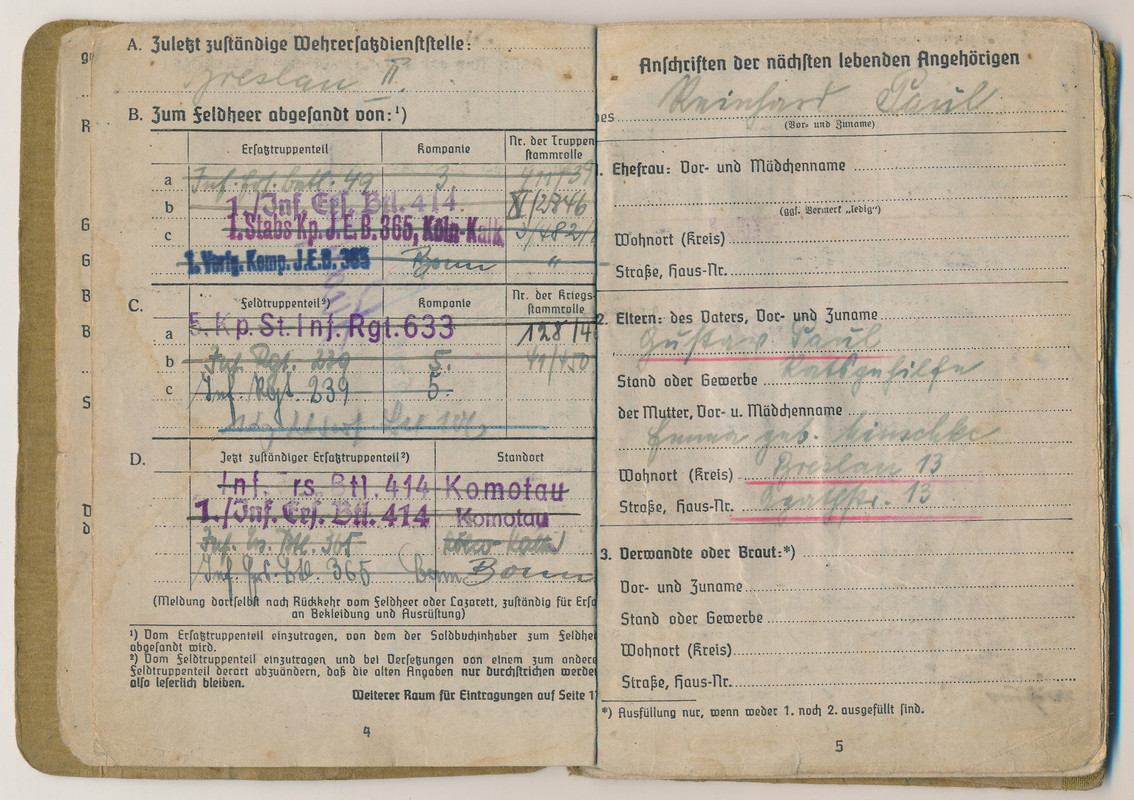 A. Zuletzt zuständige Wehrersatzdienststelle:
Breslau II.
B. Zum Feldheer abgesandt von:¹)
Ersatztruppenteil Kompanie Nr. der Truppen
stammrolle
a 3.
b 1./Inf. Ers. Btl. 414. XV/2846
c 1. Stabs Kp. J.E.B. 365, Köln-Kalk
1. Verlg. Komp. J.E.B. 365 Bonn "
C. Feldtruppenteil²) Kompanie Nr. der Kriegs-
stammrolle
a 5. Kp. St. Inf. Rgt. 633 128/4
b Inf. Rgt. 239 5. 41/450
c Inf. Rgt. 239 5.
D. Jetzt zuständiger Ersatztruppenteil²) Standort
Inf. rs. Btl. 414 Komotau
1./Inf. Ers. Btl. 414 Komotau
Inf. Ers. Btl. 365
Inf. Ers. Btl. 365 Bonn Bonn
(Meldung dortselbst nach Rückkehr vom Feldheer oder Lazarett, zuständig für Ersa
an Bekleidung und Ausrüstung)
¹) Vom Ersatztruppenteil einzutragen, von dem der Soldbuchinhaber zum Feldhe
abgesandt wird.
²) Vom Feldtruppenteil einzutragen und bei Versetzungen von einem zum andere
Feldtruppenteil derart abzuändern, daß die alten Angaben nur durchstrichen werde
also leserlich bleiben.
Weiterer Raum für Eintragungen auf Seite 1
4
Anschriften der nächsten lebenden Angehörigen
es Reinhard Paul
(Vor- und Zuname)
1. Ehefrau: Vor- und Mädchenname
(ggf. Vermerk „ledig“)
Wohnort (Kreis)
Straße, Haus-Nr.
2. Eltern: des Vaters, Vor- und Zuname
Gustav Paul
Stand oder Gewerbe Ratsgehilfe
der Mutter, Vor- u. Mädchenname
Emma geb. Minschke
Wohnort (Kreis) Breslau 13
Straße, Haus-Nr. Agathstr. 13
3. Verwandte oder Braut:*)
Vor- und Zuname
Stand oder Gewerbe
Wohnort (Kreis)
Straße, Haus-Nr.
*) Ausfüllung nur, wenn weder 1. noch 2. ausgefüllt sind.
5